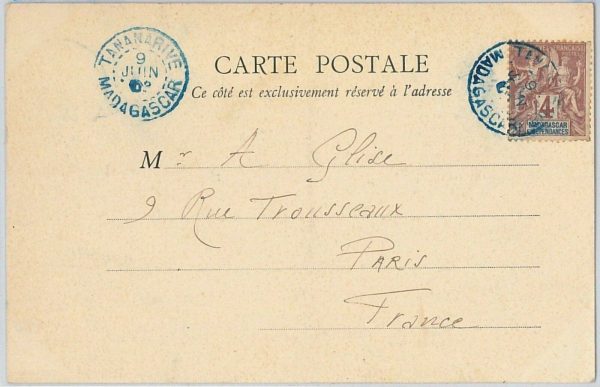 TANANARIVE
9
JUIN
02
MADAGASCAR
CARTE POSTALE
Ce côté est exclusivement réservé à l'adresse
TAN
MADAGASCAR
FRANÇAISE
4
MADAGASCAR
DÉPENDANCES
Mr A Glise
9 Rue Trousseaux
Paris
France